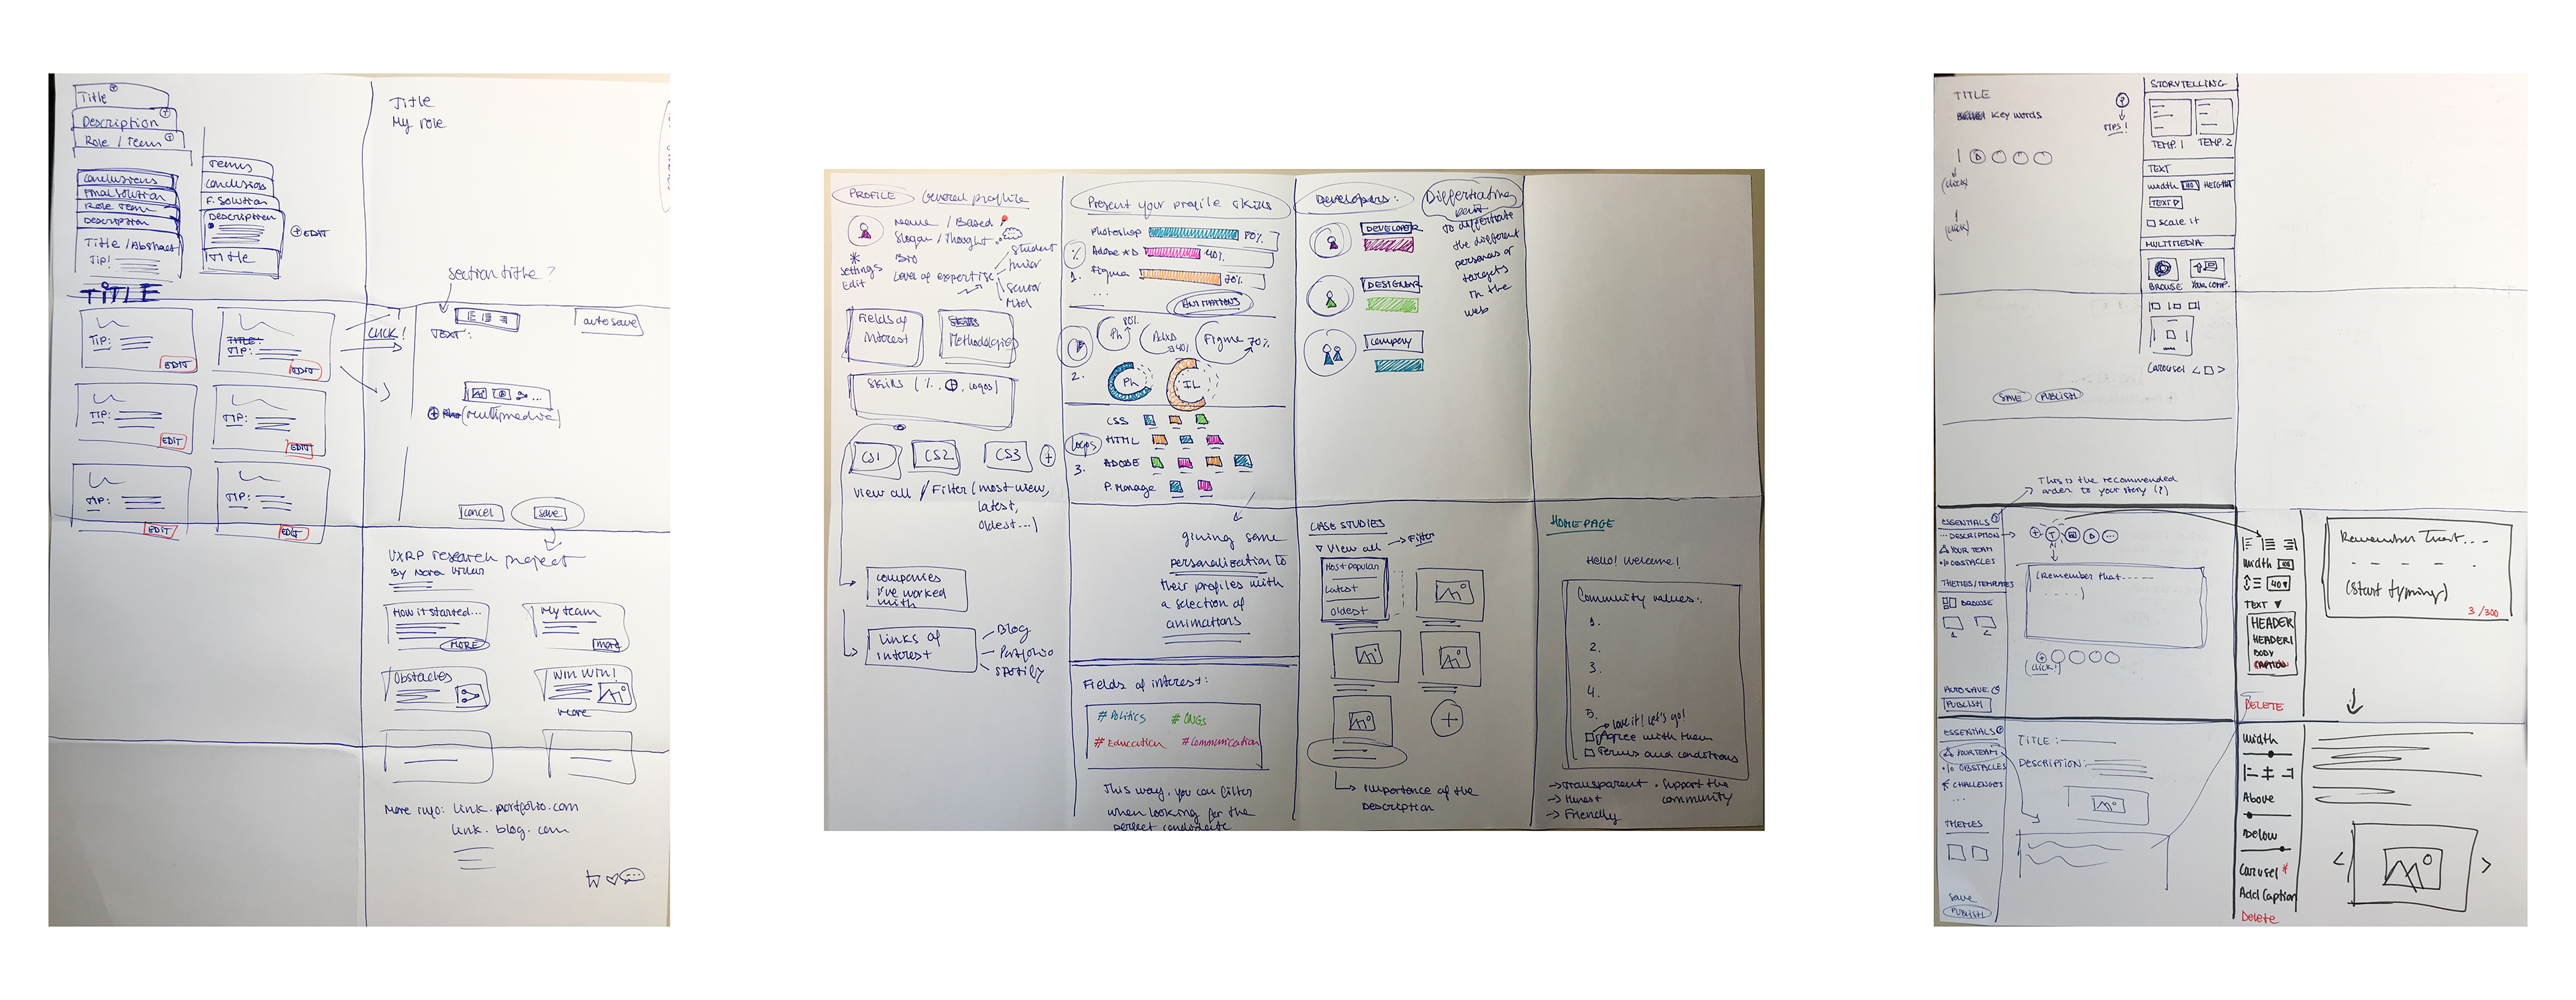 Title
Description
Role / Team
Conclusions
Final solution
Role Team
Description
Title / Abstract
Tip!
Teams
Conclusions
F. Solution
Description
Title
+ EDIT
TITLE
TIP:
EDIT
TITLE:
TIP:
EDIT
TIP:
EDIT
TIP:
EDIT
TIP:
EDIT
TIP:
EDIT
CLICK!
Title
My role
section title?
autosave
TEXT:
+ (multimedia)
cancel
save
UXRP research project
By Nora
How it started...
MORE
My team
more
Obstacles
WIN WIN!
more
More info: link.portfolio.com
link.blog.com
PROFILE
General profile
Name / Based
Slogan / Thought
Bio
Level of expertise
Student
Junior
Senior
Mid
Settings
Edit
Fields of
interest
Skills
Methodologies
Skills ( %, , logos)
CS1
CS2
CS3
+
View all / Filter (most view,
latest,
oldest...)
companies
I've worked
with
Links of
interest
Blog
Portfolio
Spotify
Present your profile skills
%
1.
Photoshop 80%
Adobe XD 40%
Figma 70%
...
ANIMATIONS
2.
Ph 80%
AdXD 40%
Figma 70%
Ph
IL
Logos
3.
CSS
HTML
ADOBE
P. Manage
giving some
personalization to
their profiles with
a selection of
animations
Fields of interest:
# Politics
# ONGs
# Education
# Communication
This way, you can filter
when looking for the
perfect candidate
Developers:
DEVELOPER
DESIGNER
Company
Differtiating
To differtiate
the different
personas or
targets
in the
web
CASE STUDIES
View all
Filter
Most popular
Latest
oldest
+
Importance of the
Description
HOMEPAGE
Hello! Welcome!
Community values:
1.
2.
3.
4.
5.
Love it! Let's go!
Agree with them
Terms and conditions
Transparent
Honest
Friendly
• Support the
community
TITLE
Key words
?
TIPS!
(click)
(click)
SAVE
PUBLISH
STORYTELLING
TEMP. 1
TEMP. 2
TEXT
width
HEIGHT
TEXT
scale it
MULTIMEDIA
BROWSE
YOUR COMP.
Carousel < >
This is the recommended
order to your story (?)
ESSENTIALS
DESCRIPTION
YOUR TEAM
OBSTACLES
THEMES/TEMPLATES
BROWSE
1
2
AUTOSAVE
PUBLISH
+ T
(Remember that -----
(click!)
width
40
TEXT
HEADER
HEADER1
BODY
CAPTION
DELETE
Remember that...
(start typing)
3 /300
ESSENTIALS
YOUR TEAM
OBSTACLES
CHALLENGES
...
THEMES
Save
PUBLISH
TITLE:
DESCRIPTION:
Width
Above
Below
Carusel *
Add Caption
Delete
< >